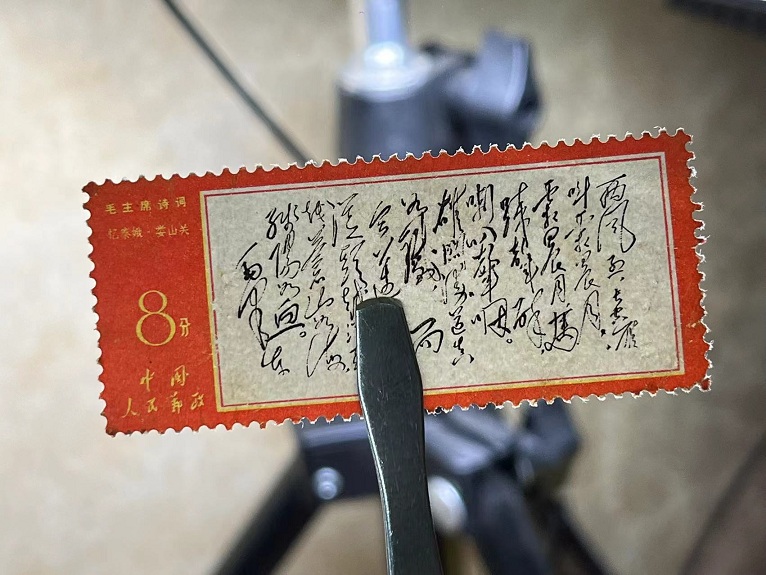 毛主席诗词
忆秦娥·娄山关
8分
中国
人民邮政
西风烈,长空雁
叫霜晨月。
霜晨月,馬
蹄聲碎,
喇叭聲咽。
雄關漫道真
如鐵,而
今迈
從頭越
越蒼山如海,
残陽如血。
毛泽东